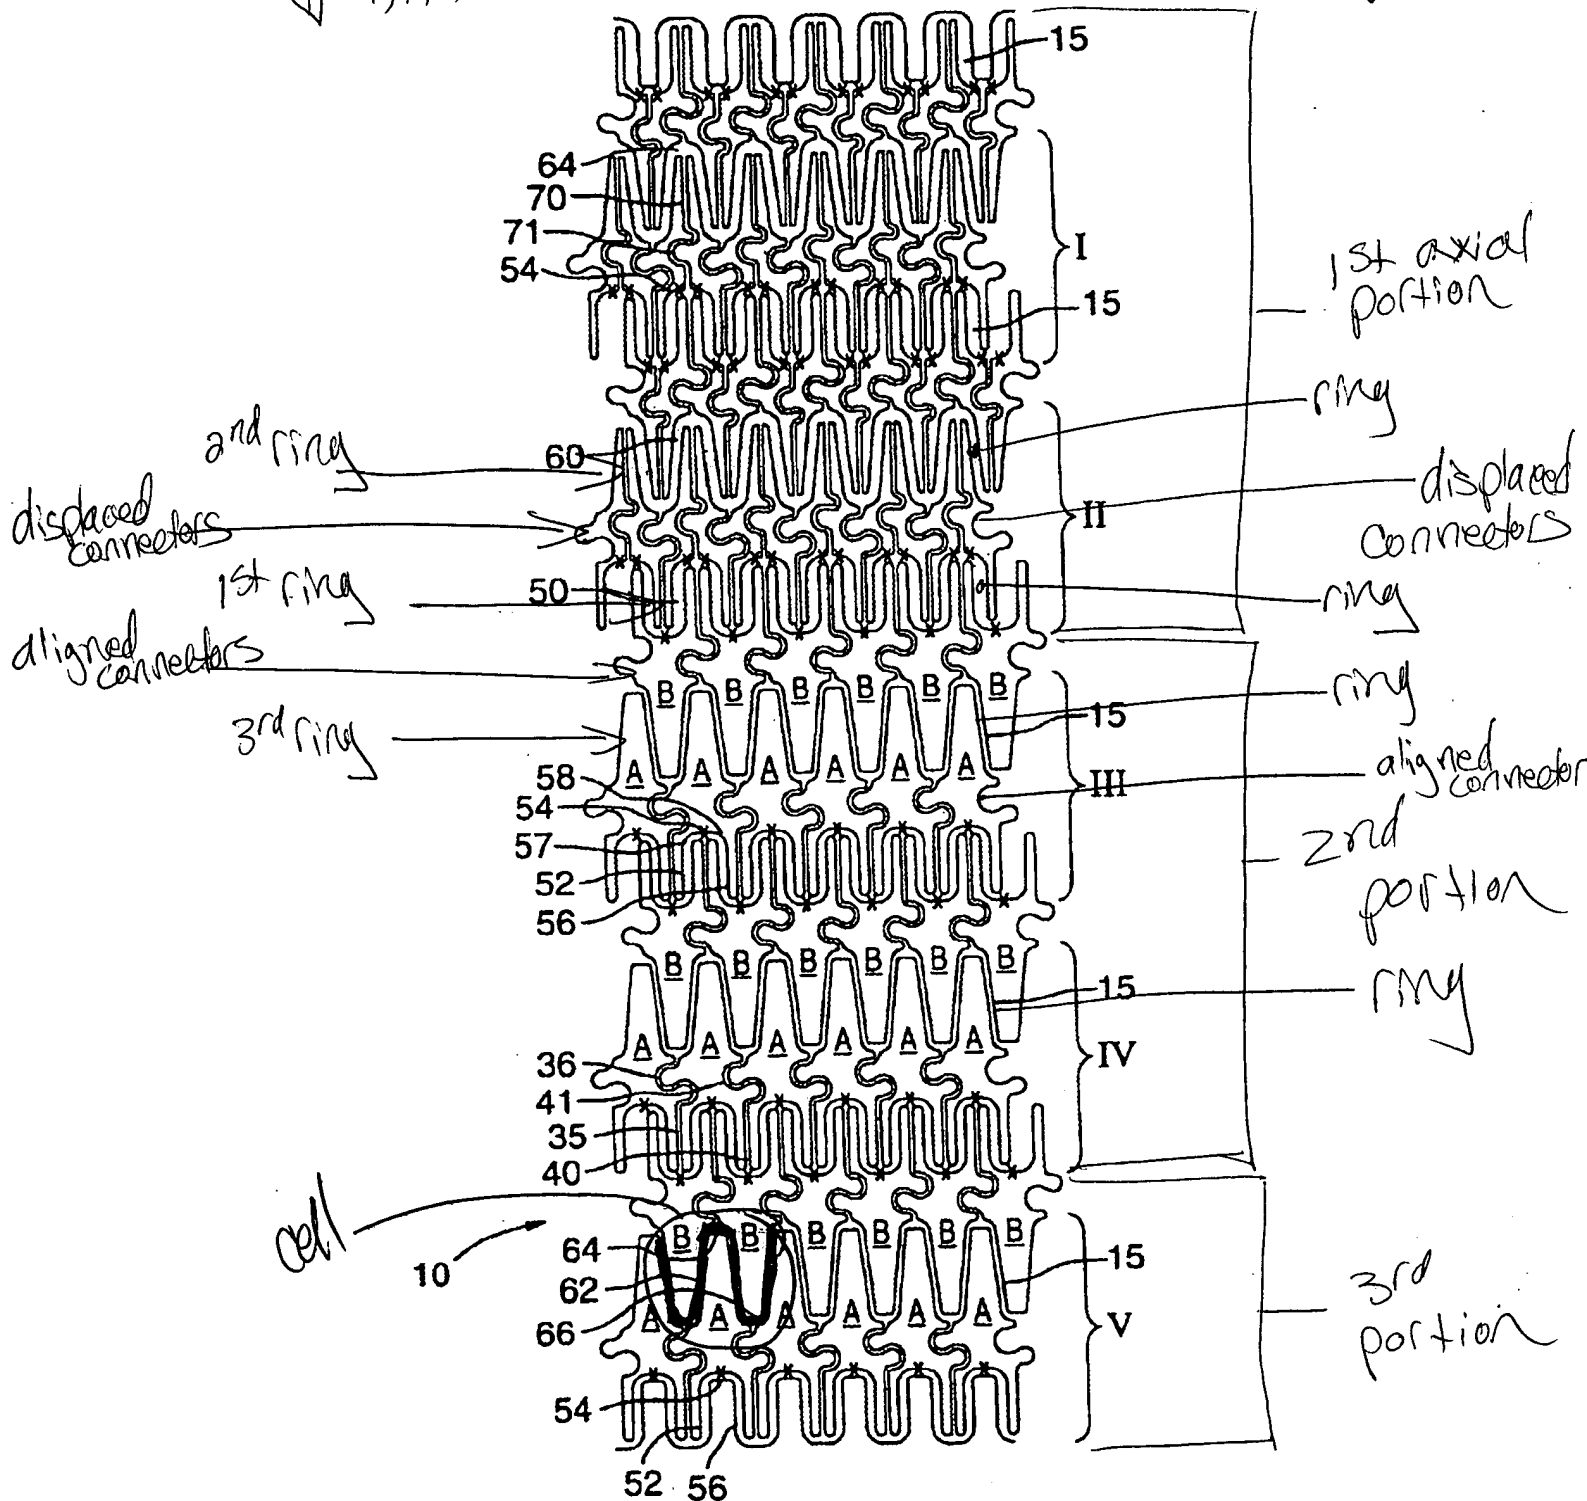 15
64
70
71
54
I
15
1st axial
portion
ring
2nd ring
60
displaced
connectors
displaced
connectors
II
1st ring
50
ring
aligned
connectors
B B B B B B
ring
15
3rd ring
A A A A A A
aligned
connector
58
III
54
57
52
56
2nd
portion
B B B B B B
15
ring
A A A A A A
36
IV
41
35
40
cell
10
B B B B B B
64
15
62
A A A A A A
66
V
3rd
portion
54
52 56